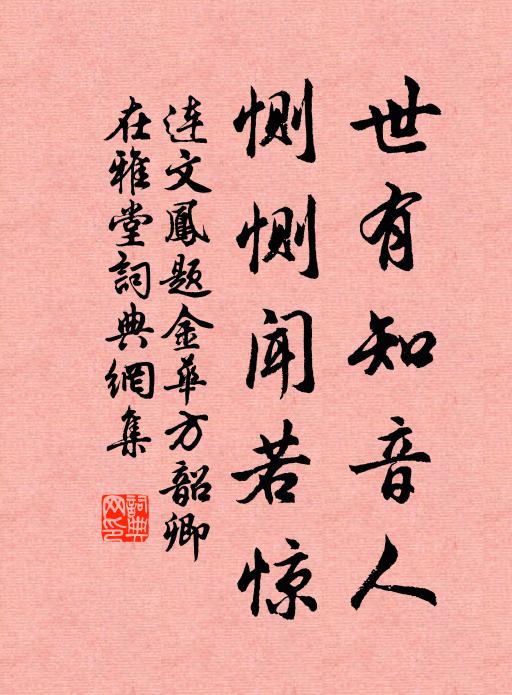 世有知音人
恻恻闻若惊
连文鳳题金華方韶卿
在雅堂詞典網集
詞典
网印